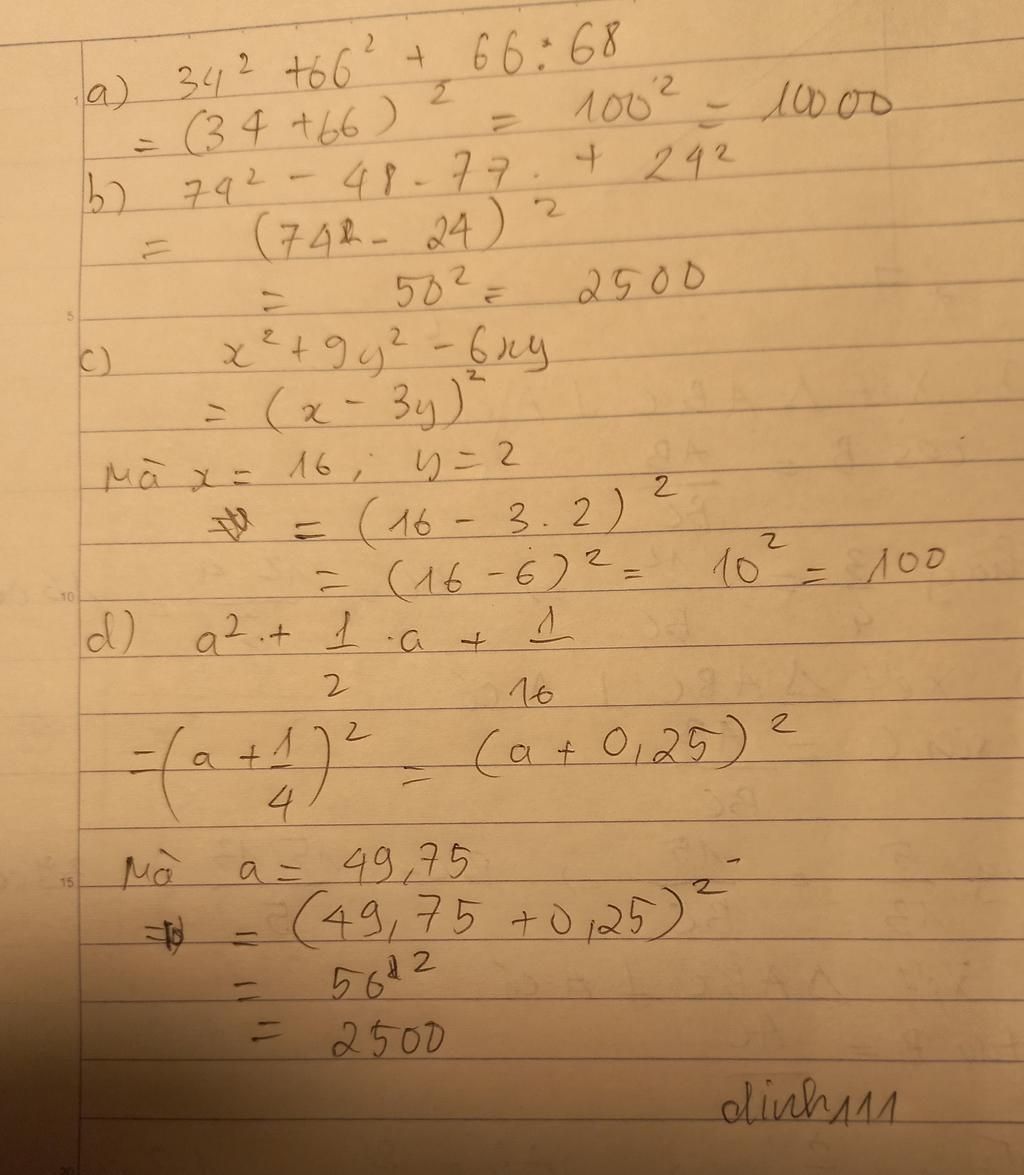 a) 34² + 66² + 66 : 68
= (34 + 66)² = 100² = 10000
b) 74² - 48 - 77. + 24²
= (74 - 24)²
= 50² = 2500
c) x² + 9y² - 6xy
= (x - 3y)²
Mà x = 16; y = 2
= (16 - 3.2)²
= (16 - 6)² = 10² = 100
d) a² . + 1/2 . a + 1/16
= (a + 1/4)² = (a + 0,25)²
Mà a = 49,75
= (49,75 + 0,25)²
= 50²
= 2500
dinh111